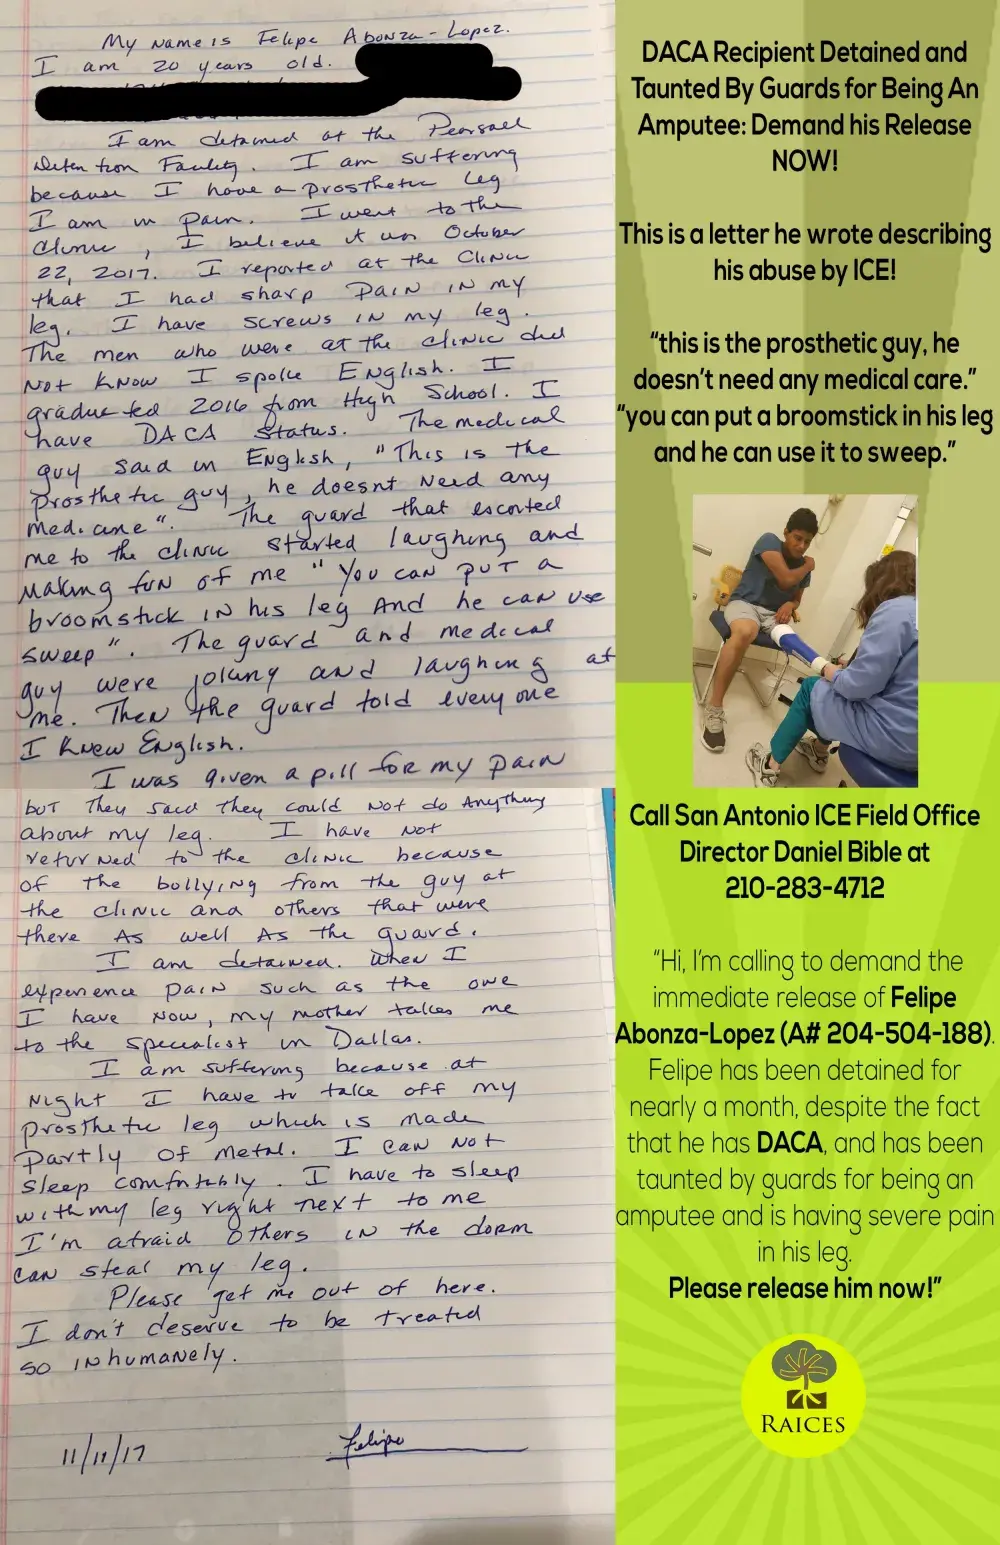 My name is Felipe Abonza-Lopez.
I am 20 years old.
I am detained at the Pearsall
Detention Facility. I am suffering
because I have a prosthetic leg
I am in pain. I went to the
clinic, I believe it was October
22, 2017. I reported at the clinic
that I had sharp pain in my
leg. I have screws in my leg.
The men who were at the clinic did
not know I spoke English. I
graduated 2016 from High School. I
have DACA status. The medical
guy said in English, "This is the
prosthetic guy, he doesnt need any
medicine". The guard that escorted
me to the clinic started laughing and
making fun of me "you can put a
broomstick in his leg and he can use
sweep". The guard and medical
guy were joking and laughing at
me. Then the guard told everyone
I knew English.
I was given a pill for my pain
but they said they could not do anything
about my leg. I have not
returned to the clinic because
of the bollying from the guy at
the clinic and others that were
there as well as the guard.
I am detained. When I
experience pain such as the one
I have now, my mother takes me
to the specialist in Dallas.
I am suffering because at
night I have to take off my
prosthetic leg which is made
partly of metal. I can not
sleep comfortably. I have to sleep
with my leg right next to me
I'm afraid others in the dorm
can steal my leg.
Please get me out of here.
I don't deserve to be treated
so inhumanely.
11/11/17 Felipe
DACA Recipient Detained and
Taunted By Guards for Being An
Amputee: Demand his Release
NOW!
This is a letter he wrote describing
his abuse by ICE!
“this is the prosthetic guy, he
doesn’t need any medical care.”
“you can put a broomstick in his leg
and he can use it to sweep.”
Call San Antonio ICE Field Office
Director Daniel Bible at
210-283-4712
“Hi, I’m calling to demand the
immediate release of Felipe
Abonza-Lopez (A# 204-504-188).
Felipe has been detained for
nearly a month, despite the fact
that he has DACA, and has been
taunted by guards for being an
amputee and is having severe pain
in his leg.
Please release him now!”
RAICES